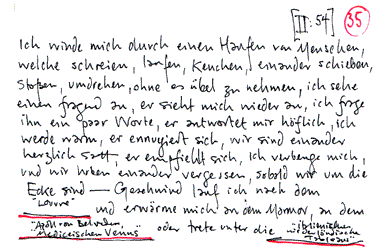 [II: 54] 35
Ich winde mich durch einen Haufen von Menschen,
welche schreien, laufen, keuchen, einander schieben,
stoßen, umdrehen, ohne es übel zu nehmen, ich sehe
einen fragend an, er sieht mich wieder an, ich frage
ihn ein paar Worte, er antwortet mir höflich, ich
werde warm, er ennuyiert sich, wir sind einander
herzlich satt, er empfiehlt sich, ich verbeuge mich,
und wir haben einander vergessen, sobald wir um die
Ecke sind — Geschwind lauf ich nach dem
"Louvre" und erwärme mich an dem Marmor, an dem
"Apoll von Belvedere"
Mediceischen Venus" oder trete unter die italienischen
niederländische
Tableaus"